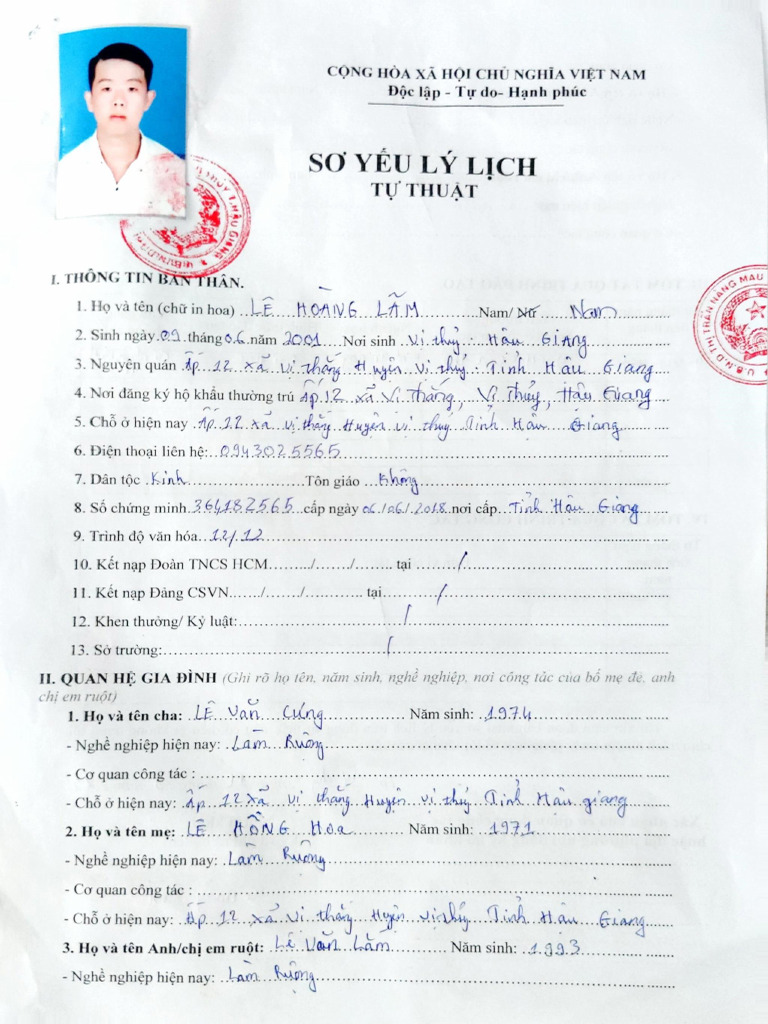 CỘNG HÒA XÃ HỘI CHỦ NGHĨA VIỆT NAM
Độc lập - Tự do- Hạnh phúc
SƠ YẾU LÝ LỊCH
TỰ THUẬT
THỦY T.HẬU GIANG
U.B.N.D THỊ TRẤN NÀNG MAU
I. THÔNG TIN BẢN THÂN.
1. Họ và tên (chữ in hoa) LÊ HOÀNG LÃM Nam/ Nữ Nam
2. Sinh ngày 09 tháng 06 năm 2001 Nơi sinh Vị thủy Hậu Giang
3. Nguyên quán Ấp 12 xã vị thắng Huyện vị thủy Tỉnh Hậu Giang
4. Nơi đăng ký hộ khẩu thường trú Ấp 12 xã Vị thắng, Vị Thủy, Hậu Giang
5. Chỗ ở hiện nay Ấp 12 xã vị thắng Huyện vị thủy Tỉnh Hậu Giang
6. Điện thoại liên hệ: 0943025565
7. Dân tộc Kinh Tôn giáo Không
8. Số chứng minh 364182565 cấp ngày 06/06/2018 nơi cấp Tỉnh Hậu Giang
9. Trình độ văn hóa 12/12
10. Kết nạp Đoàn TNCS HCM......../......../........ tại /
11. Kết nạp Đảng CSVN......./......./............. tại /
12. Khen thưởng/ Kỷ luật: /
13. Sở trường: /
II. QUAN HỆ GIA ĐÌNH (Ghi rõ họ tên, năm sinh, nghề nghiệp, nơi công tác của bố mẹ đẻ, anh
chị em ruột)
1. Họ và tên cha: LÊ Văn Cứng Năm sinh: 1974
- Nghề nghiệp hiện nay: Làm Ruộng
- Cơ quan công tác :
- Chỗ ở hiện nay: Ấp 12 xã vị thắng Huyện vị thủy Tỉnh Hậu giang
2. Họ và tên mẹ: LÊ HỒNG Hoa Năm sinh: 1971
- Nghề nghiệp hiện nay: Làm Ruộng
- Cơ quan công tác :
- Chỗ ở hiện nay: Ấp 12 xã vị thắng Huyện vị thủy Tỉnh Hậu Giang
3. Họ và tên Anh/chị em ruột: Lê Văn Lắm Năm sinh: 1993
- Nghề nghiệp hiện nay: Làm Ruộng